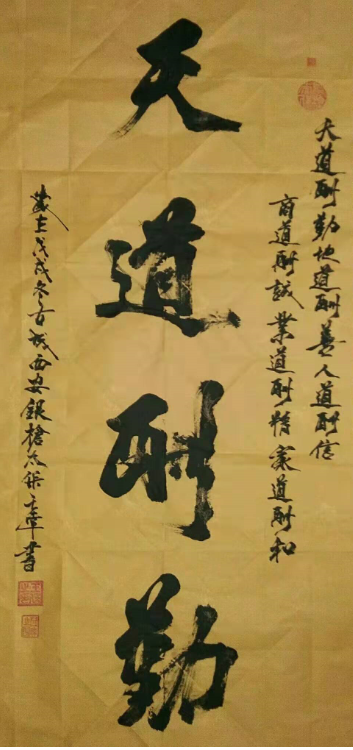 天道酬勤
天道酬勤地道酬善人道酬信
商道酬誠業道酬精家道酬和
歲在戊戌冬古城西安銀槍
書